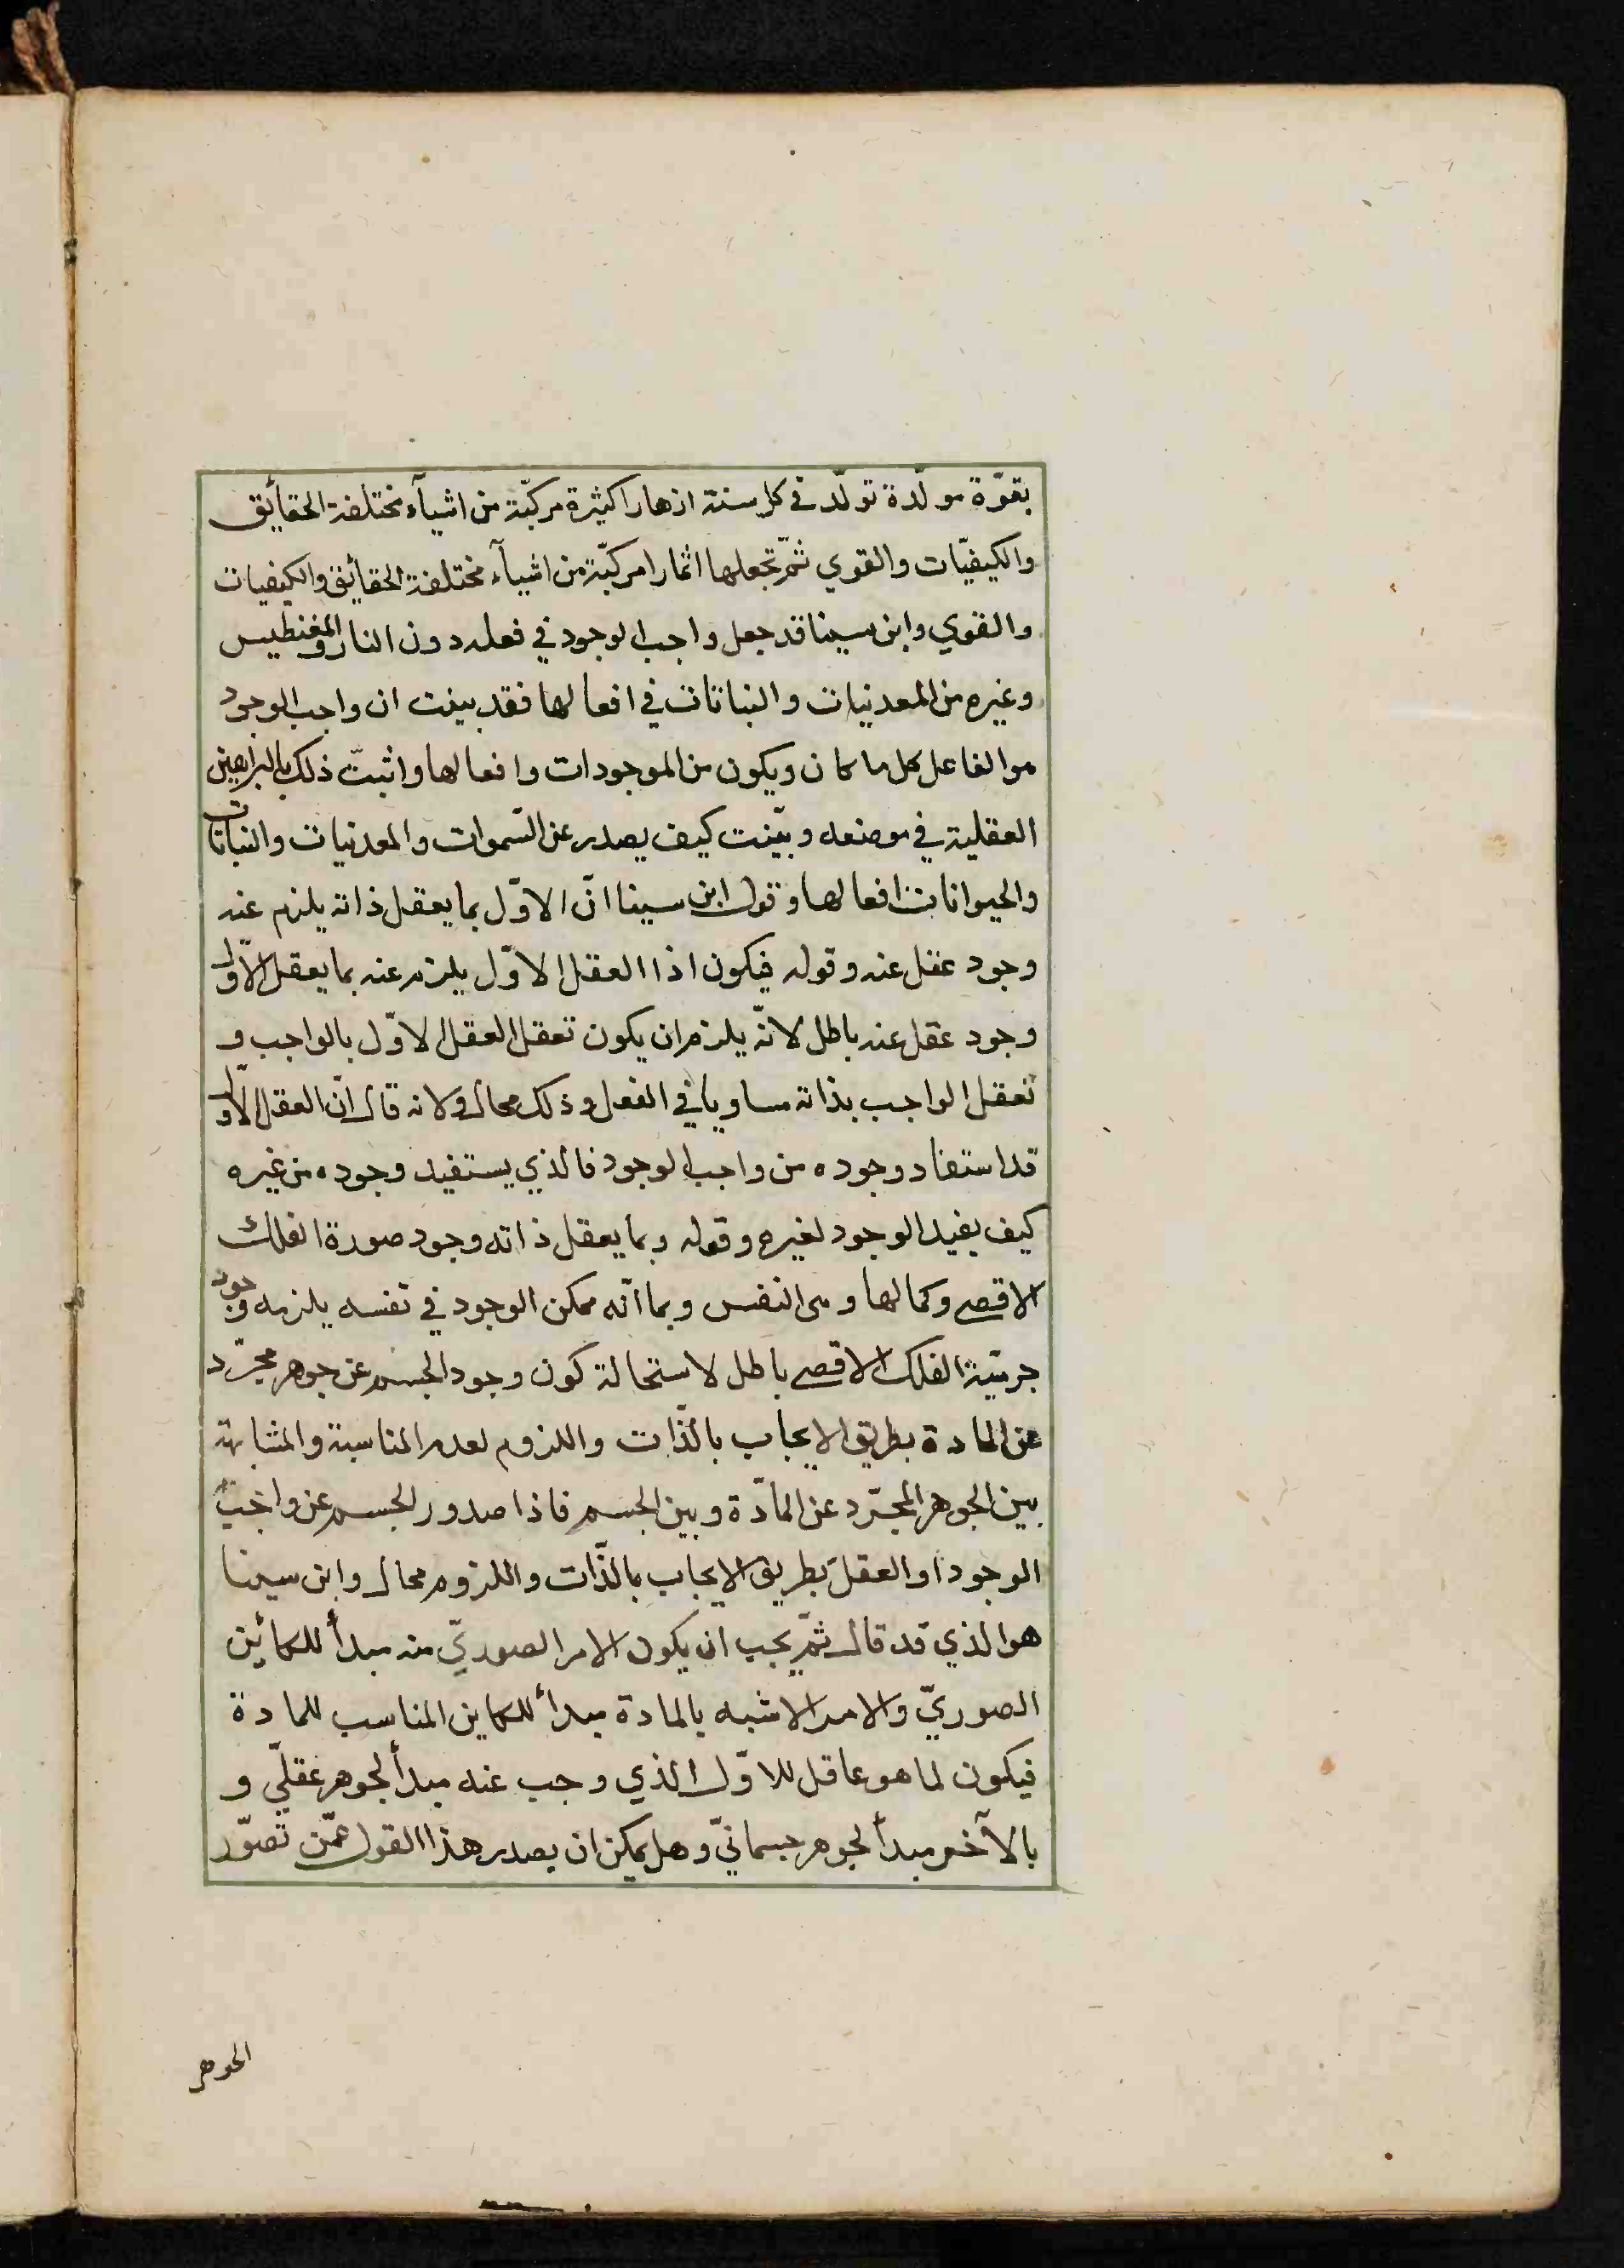 بقوّة مولّدة تولّد في كل سنة ازهارا كثيرة مركبّة من اشيآء مختلفة الحقائق
والكيفيّات والقوي ثمّ تجعلها اثمارا مركبّة من اشيآء مختلفة الحقائق والكيفيات
والقوي وابن سينا قد جعل واجب الوجود في فعله دون النار والمغنطيس
وغيره من المعدنيات والنباتات في افعالها فقد بينت ان واجب الوجود
هو الفاعل لكل ما كان ويكون من الموجودات وافعالها واثبتّ ذلك بالبراهين
العقلية في موضعه وبيّنت كيف يصدر عن السّموات والمعدنيات والنباتات
والحيوانات افعالها وقول ابن سينا انّ الاوّل بما يعقل ذاته يلزم عنه
وجود عقل عنه وقوله فيكون اذا العقل الاوّل يلزم عنه بما يعقل الاوّل
وجود عقل عنه باطل لانّه يلزم ان يكون تعقل العقل الاوّل بالواجب و
تعقل الواجب بذاته مساويا في الفعل وذلك محال ولانه قال انّ العقل الاوّل
قد استفاد وجوده من واجب الوجود فالذي يستفيد وجوده من غيره
كيف يفيد الوجود لغيره وقوله وبما يعقل ذاته وجود صورة الفلك
الاقصي وكمالها وهى النفس وبما انّه ممكن الوجود في نفسه يلزمه وجود
جرميّة الفلك الاقصي باطل لاستحالة كون وجود الجسم عن جوهر مجرّد
عن المادة بطريق الايجاب بالذّات واللزوم لعدم المناسبة والمشابهة
بين الجوهر المجرّد عن المادّة وبين الجسم فاذا صدور الجسم عن واجب
الوجود او العقل بطريق الايجاب بالذّات واللزوم محال وابن سينا
هو الذي قد قال ثمّ يجب ان يكون الامر الصوريّ منه مبدأ للكائين
الصوريّ والامر الاشبه بالمادة مبدأ للكاين المناسب للمادة
فيكون لما هو عاقل للاوّل الذي وجب عنه مبدأ لجوهر عقلّي و
بالآخر مبدأ لجوهر جسمانيّ وهل يمكن ان يصدر هذا القول عمّن تصوّر
الجوهر